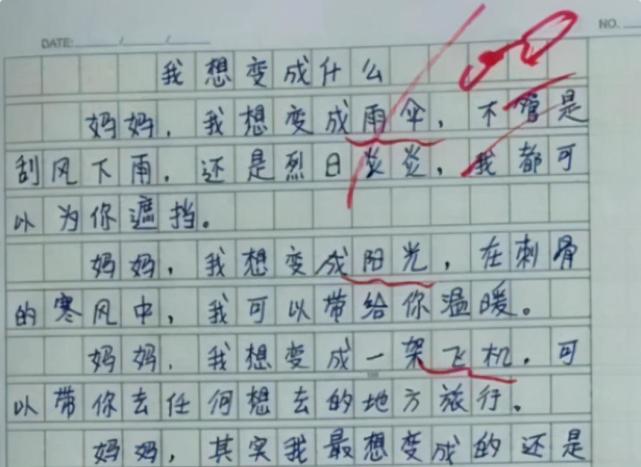 DATE: / / NO.
我想变成什么
妈妈，我想变成雨伞，不管是
刮风下雨，还是烈日炎炎，我都可
以为你遮挡。
妈妈，我想变成阳光，在刺骨
的寒风中，我可以带给你温暖。
妈妈，我想变成一架飞机，可
以带你去任何想去的地方旅行。
妈妈，其实我最想变成的还是